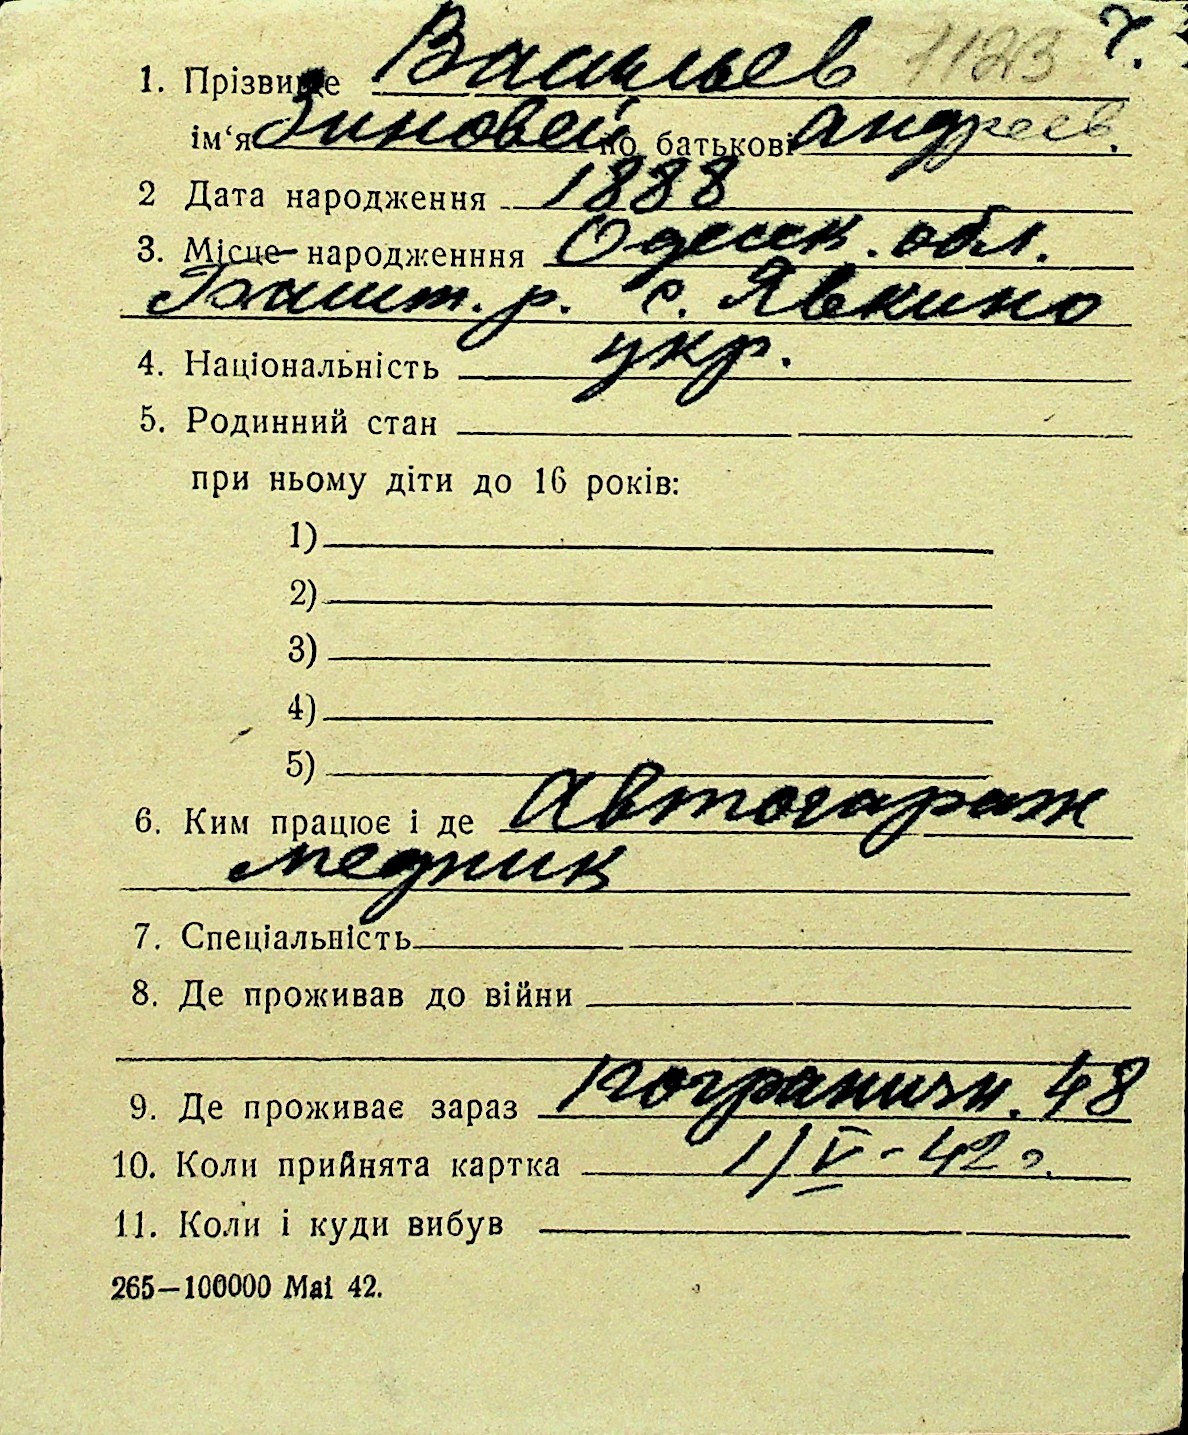 1. Прізвище Васильев 1123 7.
ім‘я Зиновей по батькові Андреев.
2 Дата народження 1888
3. Місце народженння Одесск. обл.
Башт. р. с. Явкино
4. Національність укр.
5. Родинний стан
при ньому діти до 16 років:
1)
2)
3)
4)
5)
6. Ким працює і де Автогараж
медник
7. Спеціальність
8. Де проживав до війни
9. Де проживає зараз Пограничн. 48
10. Коли прийнята картка 1/V-42 г.
11. Коли і куди вибув
265—100000 Mai 42.